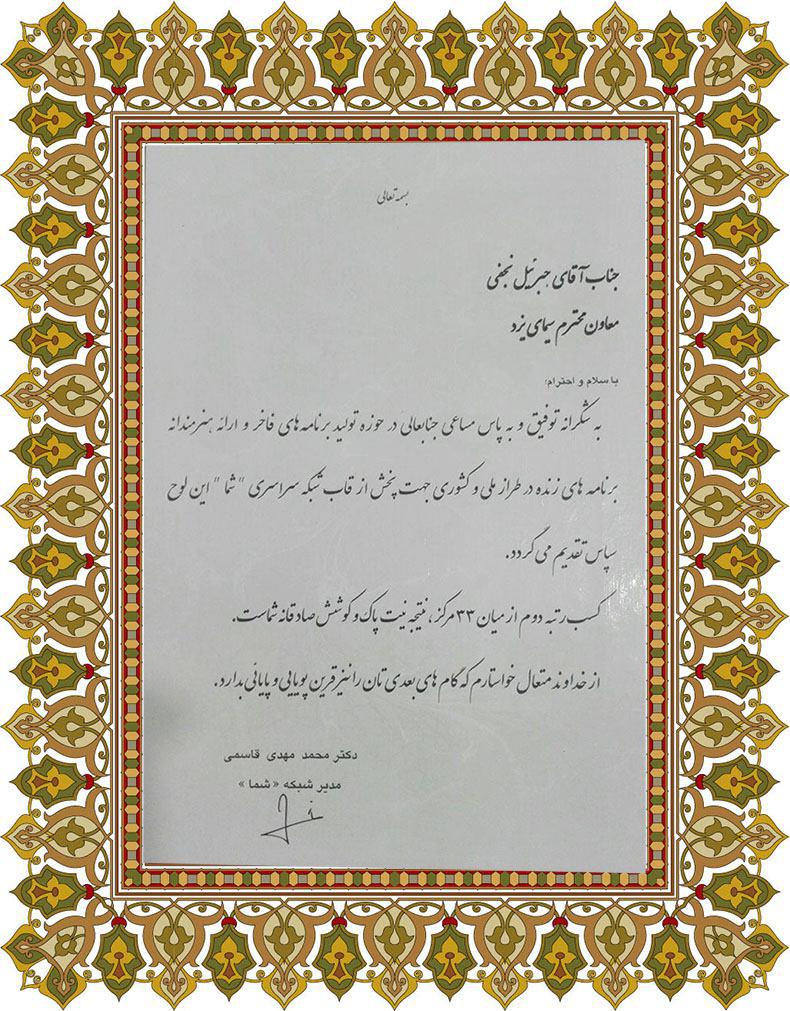 بسمه تعالی
جناب آقای جبرئیل نجفی
معاون محترم سیمای یزد
با سلام و احترام؛
به شکرانه توفیق و به پاس مساعی جنابعالی در حوزه تولید برنامه های فاخر و ارائه هنرمندانه
برنامه های زنده در طراز ملی و کشوری جهت پخش از قاب شبکه سراسری "شما" این لوح
سپاس تقدیم می گردد.
کسب رتبه دوم از میان ۳۳ مرکز، نتیجه نیت پاک و کوشش صادقانه شماست.
از خداوند متعال خواستارم که گام های بعدی تان را نیز قرین پویایی و پایائی بدارد.
دکتر محمد مهدی قاسمی
مدیر شبکه «شما»